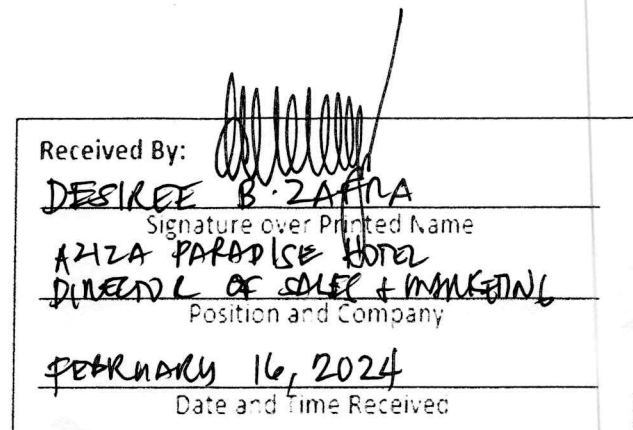 Received By:
DESIREE B. ZAFRA
Signature over Printed Name
AZIZA PARADISE HOTEL
DIRECTOR OF SALES & MARKETING
Position and Company
FEBRUARY 16, 2024
Date and Time Received